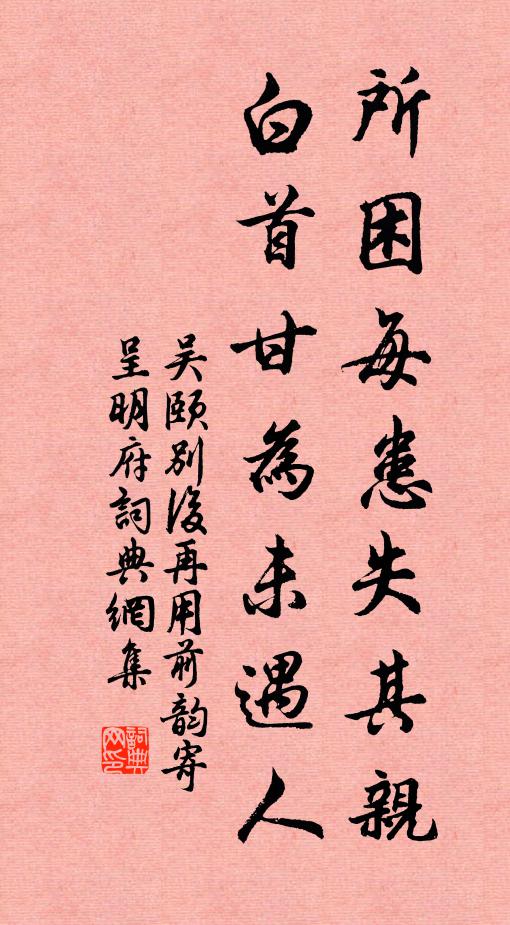 所困每患失其親
白首甘為未遇人
吴颐別後再用前韵寄
呈明府詞典網集
詞典
网印